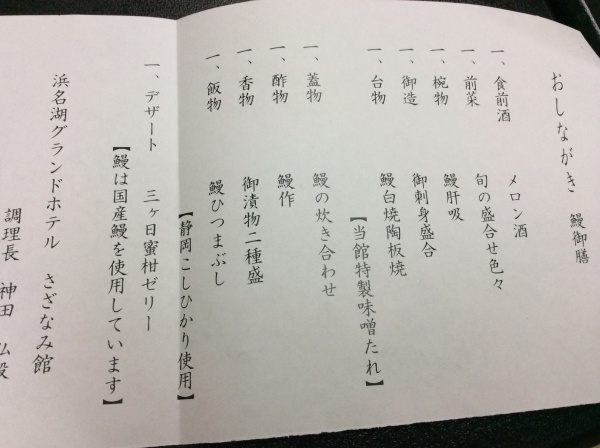 おしながき　鰻御膳
一、食前酒　メロン酒
一、前菜　旬の盛合せ色々
一、椀物　鰻肝吸
一、御造　御刺身盛合
一、台物　鰻白焼陶板焼
【当館特製味噌たれ】
一、蓋物　鰻の炊き合わせ
一、酢物　鰻作
一、香物　御漬物二種盛
一、飯物　鰻ひつまぶし
【静岡こしひかり使用】
一、デザート　三ヶ日蜜柑ゼリー
【鰻は国産鰻を使用しています】
浜名湖グランドホテル　さざなみ館
調理長　神田　弘